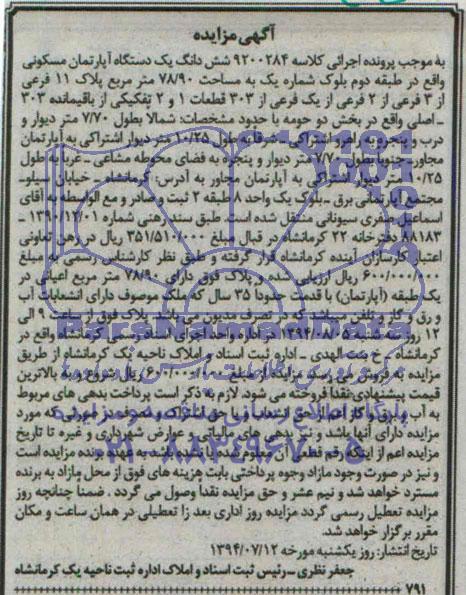 آگهی مزایده
به موجب پرونده اجرائی کلاسه ۹۲۰۰۲۸۴ شش دانگ یک دستگاه آپارتمان مسکونی
واقع در طبقه دوم بلوک شماره یک به مساحت ۷۸/۹۰ متر مربع پلاک ۱۱ فرعی
از ۳ فرعی از ۲ فرعی از یک فرعی از ۳۰۳ قطعات ۱ و ۲ تفکیکی از باقیمانده ۳۰۳
ـ اصلی واقع در بخش دو حومه با حدود مشخصات: شمالا بطول ۷/۷۰ متر دیوار و
درب و پنجره به راهرو اشتراکی ـ شرقا به طول ۱۰/۲۵ متر دیوار اشتراکی به آپارتمان
مجاور ـ جنوبا بطول ۷/۷۰ متر دیوار و پنجره به فضای محوطه مشاعی ـ غربا به طول
۱۰/۲۵ متر دیوار اشتراکی به آپارتمان مجاور به آدرس: کرمانشاه ـ خیابان سیلو ـ
مجتمع آپارتمانی برق ـ بلوک یک واحد ۸ طبقه ۲ ثبت و صادر و مع الواسطه به آقای
اسماعیل صفری سیونانی منتقل شده است. طبق سند رهنی شماره ۱۳۹۰/۱۲/۰۱ ـ
۸۸۱۸۳ دفترخانه ۲۲ کرمانشاه در قبال مبلغ ۳۵۱/۵۱۰/۰۰۰ ریال در رهن تعاونی
اعتبار کارسازان آینده کرمانشاه قرار گرفته و طبق نظر کارشناس رسمی به مبلغ
۶۰۰/۰۰۰/۰۰۰ ریال ارزیابی شده و پلاک فوق دارای ۷۸/۹۰ متر مربع اعیانی در
یک طبقه (آپارتمان) با قدمت حدودا ۳۵ سال که ملک موصوف دارای انشعابات آب
و برق و گاز و تلفن میباشد که در تصرف مدیون می باشد. پلاک فوق از ساعت ۹ الی
۱۲ روز سه شنبه ۱۳۹۴/۰۸/۰۵ در اداره واحد اجرای اسناد رسمی کرمانشاه واقع در
کرمانشاه ـ خ بنت الهدی ـ اداره ثبت اسناد و املاک ناحیه یک کرمانشاه از طریق
مزایده به فروش می رسد. مزایده از مبلغ ۶۰۰/۰۰۰/۰۰۰ ریال شروع و به بالاترین
قیمت پیشنهادی نقدا فروخته می شود. لازم به ذکر است پرداخت بدهی های مربوط
به آب و برق و گاز اعم از حق انشعاب و یا حق اشتراک و مصرف در صورتی که مورد
مزایده دارای آنها باشد و نیز بدهی های مالیاتی و عوارض شهرداری و غیره تا تاریخ
مزایده اعم از اینکه رقم قطعی آن معلوم شده یا نشده باشد به عهده برنده مزایده است
و نیز در صورت وجود مازاد وجوه پرداختی بابت هزینه های فوق از محل مازاد به برنده
مسترد خواهد شد و نیم عشر و حق مزایده نقدا وصول می گردد. ضمنا چنانچه روز
مزایده تعطیل رسمی گردد مزایده روز اداری بعد از تعطیلی در همان ساعت و مکان
مقرر برگزار خواهد شد.
تاریخ انتشار: روز یکشنبه مورخه ۱۳۹۴/۰۷/۱۲
جعفر نظری ـ رئیس ثبت اسناد و املاک اداره ثبت ناحیه یک کرمانشاه
۷۹۱
ParsNamadData
۰۲۱-۸۸۳۴۹۶۷۰-۵